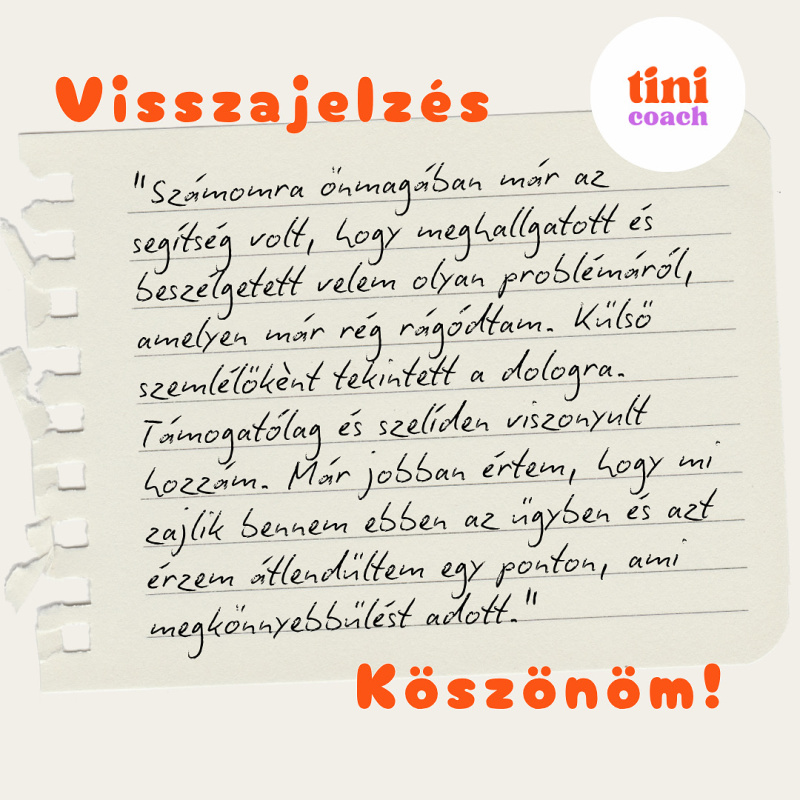 Visszajelzés
tini
coach
"Számomra önmagában már az
segítség volt, hogy meghallgatott és
beszélgetett velem olyan problémáról,
amelyen már rég rágódtam. Külső
szemlélőkènt tekintett a dologra.
Támogatólag és szelíden viszonyult
hozzám. Már jobban értem, hogy mi
zajlik bennem ebben az ügyben és azt
érzem átlendültem egy ponton, ami
megkönnyebbülést adott."
Köszönöm!